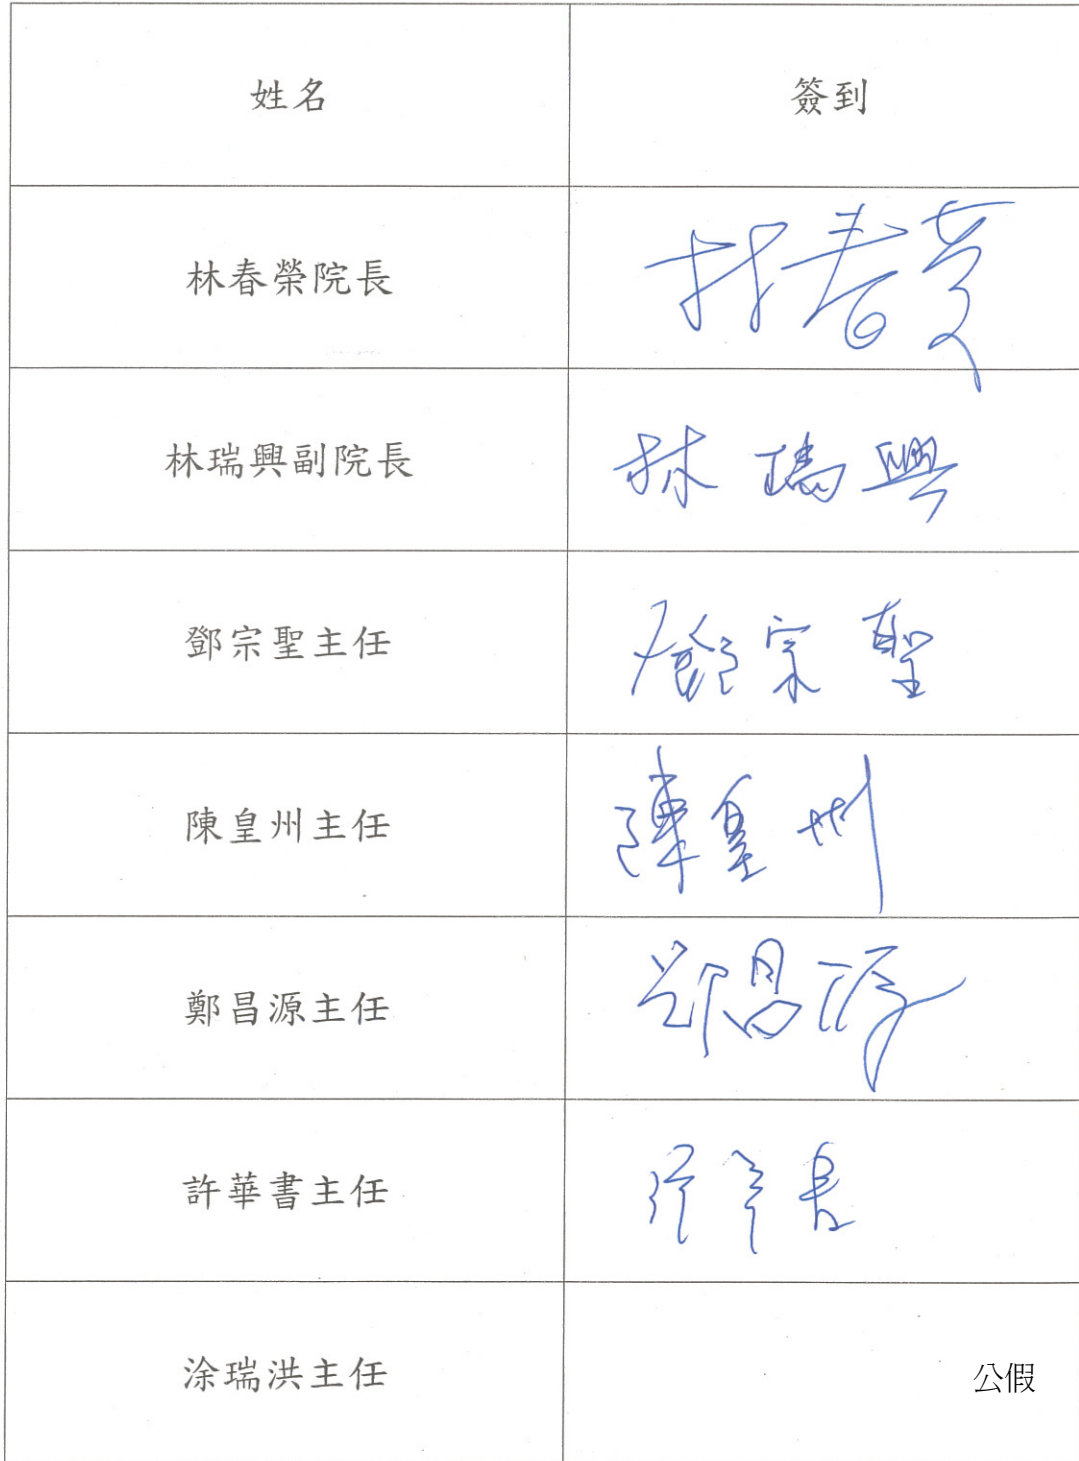 姓名 簽到
林春榮院長 林春荣
林瑞興副院長 林瑞興
鄧宗聖主任 鄧宗聖
陳皇州主任 陳皇州
鄭昌源主任 鄭昌源
許華書主任
涂瑞洪主任 公假